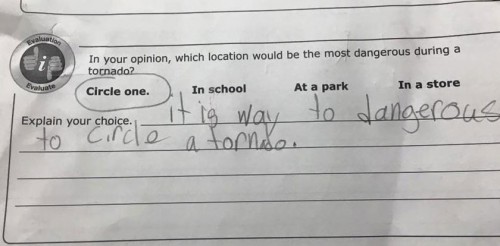 Evaluation
In your opinion, which location would be the most dangerous during a
tornado?
Evaluate
Circle one. In school At a park In a store
Explain your choice. It is way to dangerous
to circle a torndo.